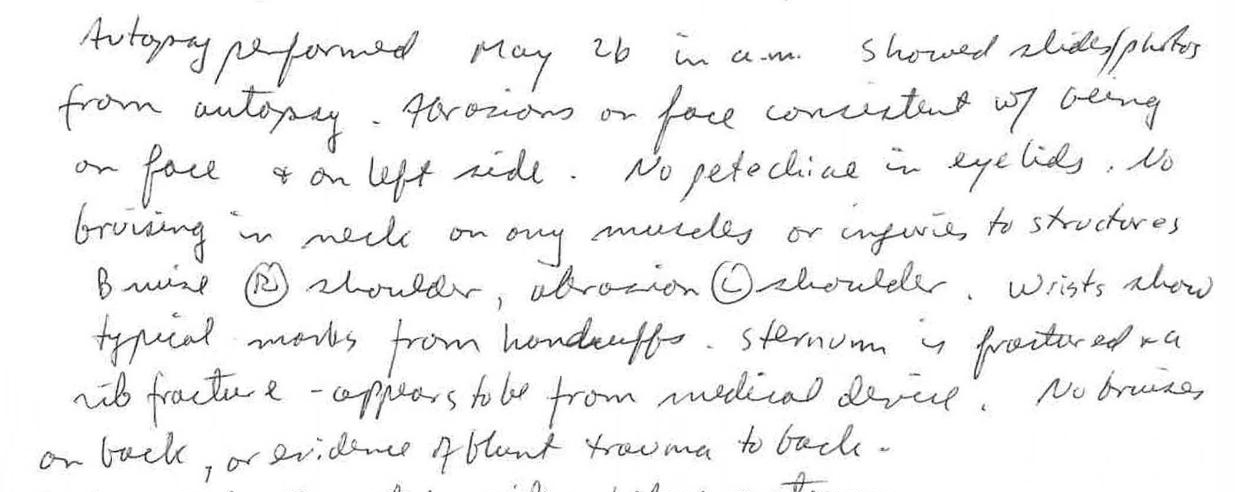 Autopsy performed May 26 in a.m. Showed slides/photos
from autopsy. Abrasions on face consistent w/ being
on face & on left side. No petechiae in eyelids. No
bruising in neck on any muscles or injuries to structures
Bruise Ⓡ shoulder, abrasion Ⓛ shoulder. Wrists show
typical marks from handcuffs. Sternum is fractured & a
rib fracture - appears to be from medical device. No bruises
on back, or evidence of blunt trauma to back.